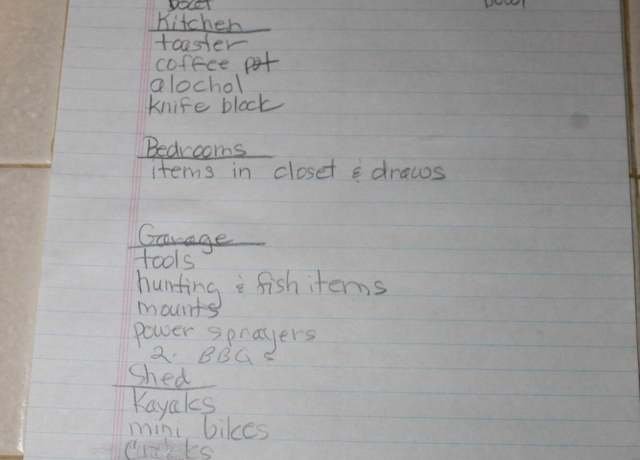 Kitchen
toaster
coffee pot
alochol
knife block
Bedrooms
items in closet & draws
Garage
tools
hunting & fish items
mounts
power sprayers
2. BBQs
Shed
Kayaks
mini bikes